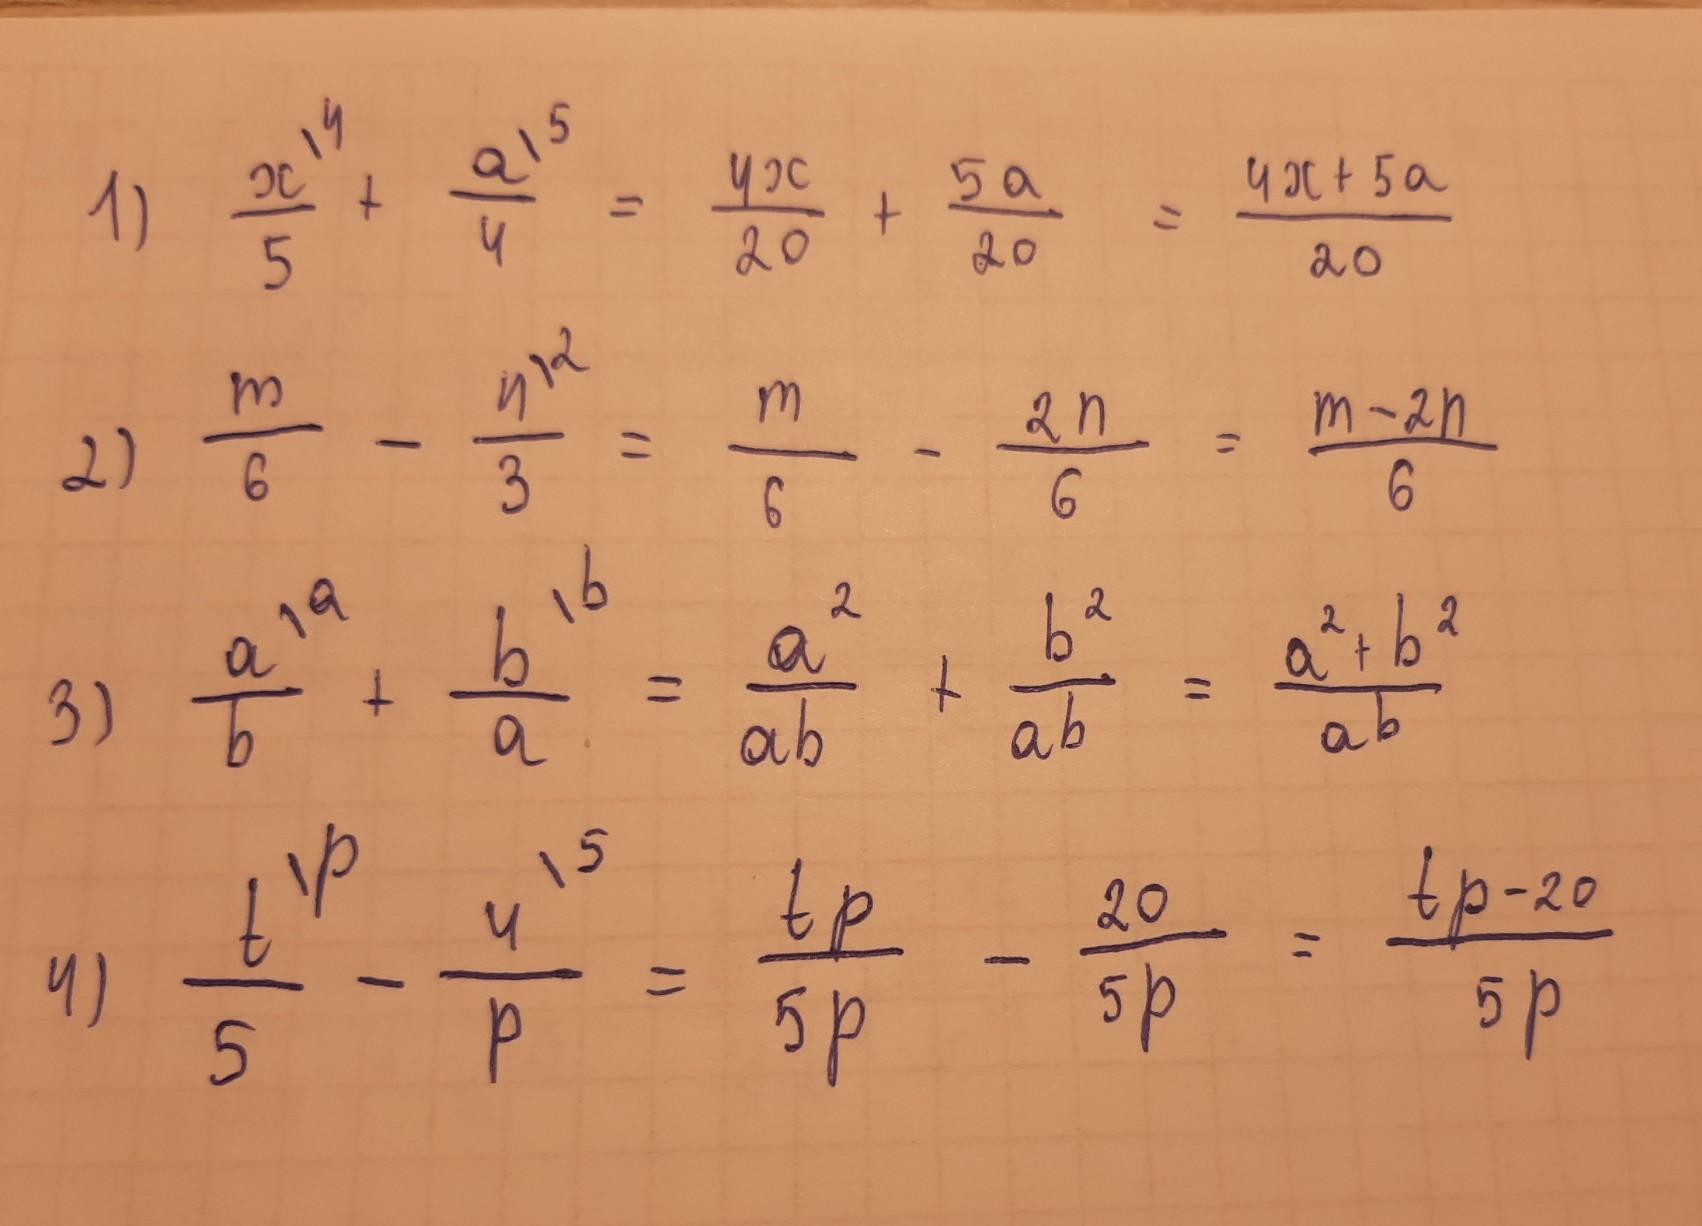 1) x\4/5 + a\5/4 = 4x/20 + 5a/20 = (4x+5a)/20
2) m/6 - n\2/3 = m/6 - 2n/6 = (m-2n)/6
3) a\a/b + b\b/a = a²/ab + b²/ab = (a²+b²)/ab
4) t\p/5 - 4\5/p = tp/5p - 20/5p = (tp-20)/5p